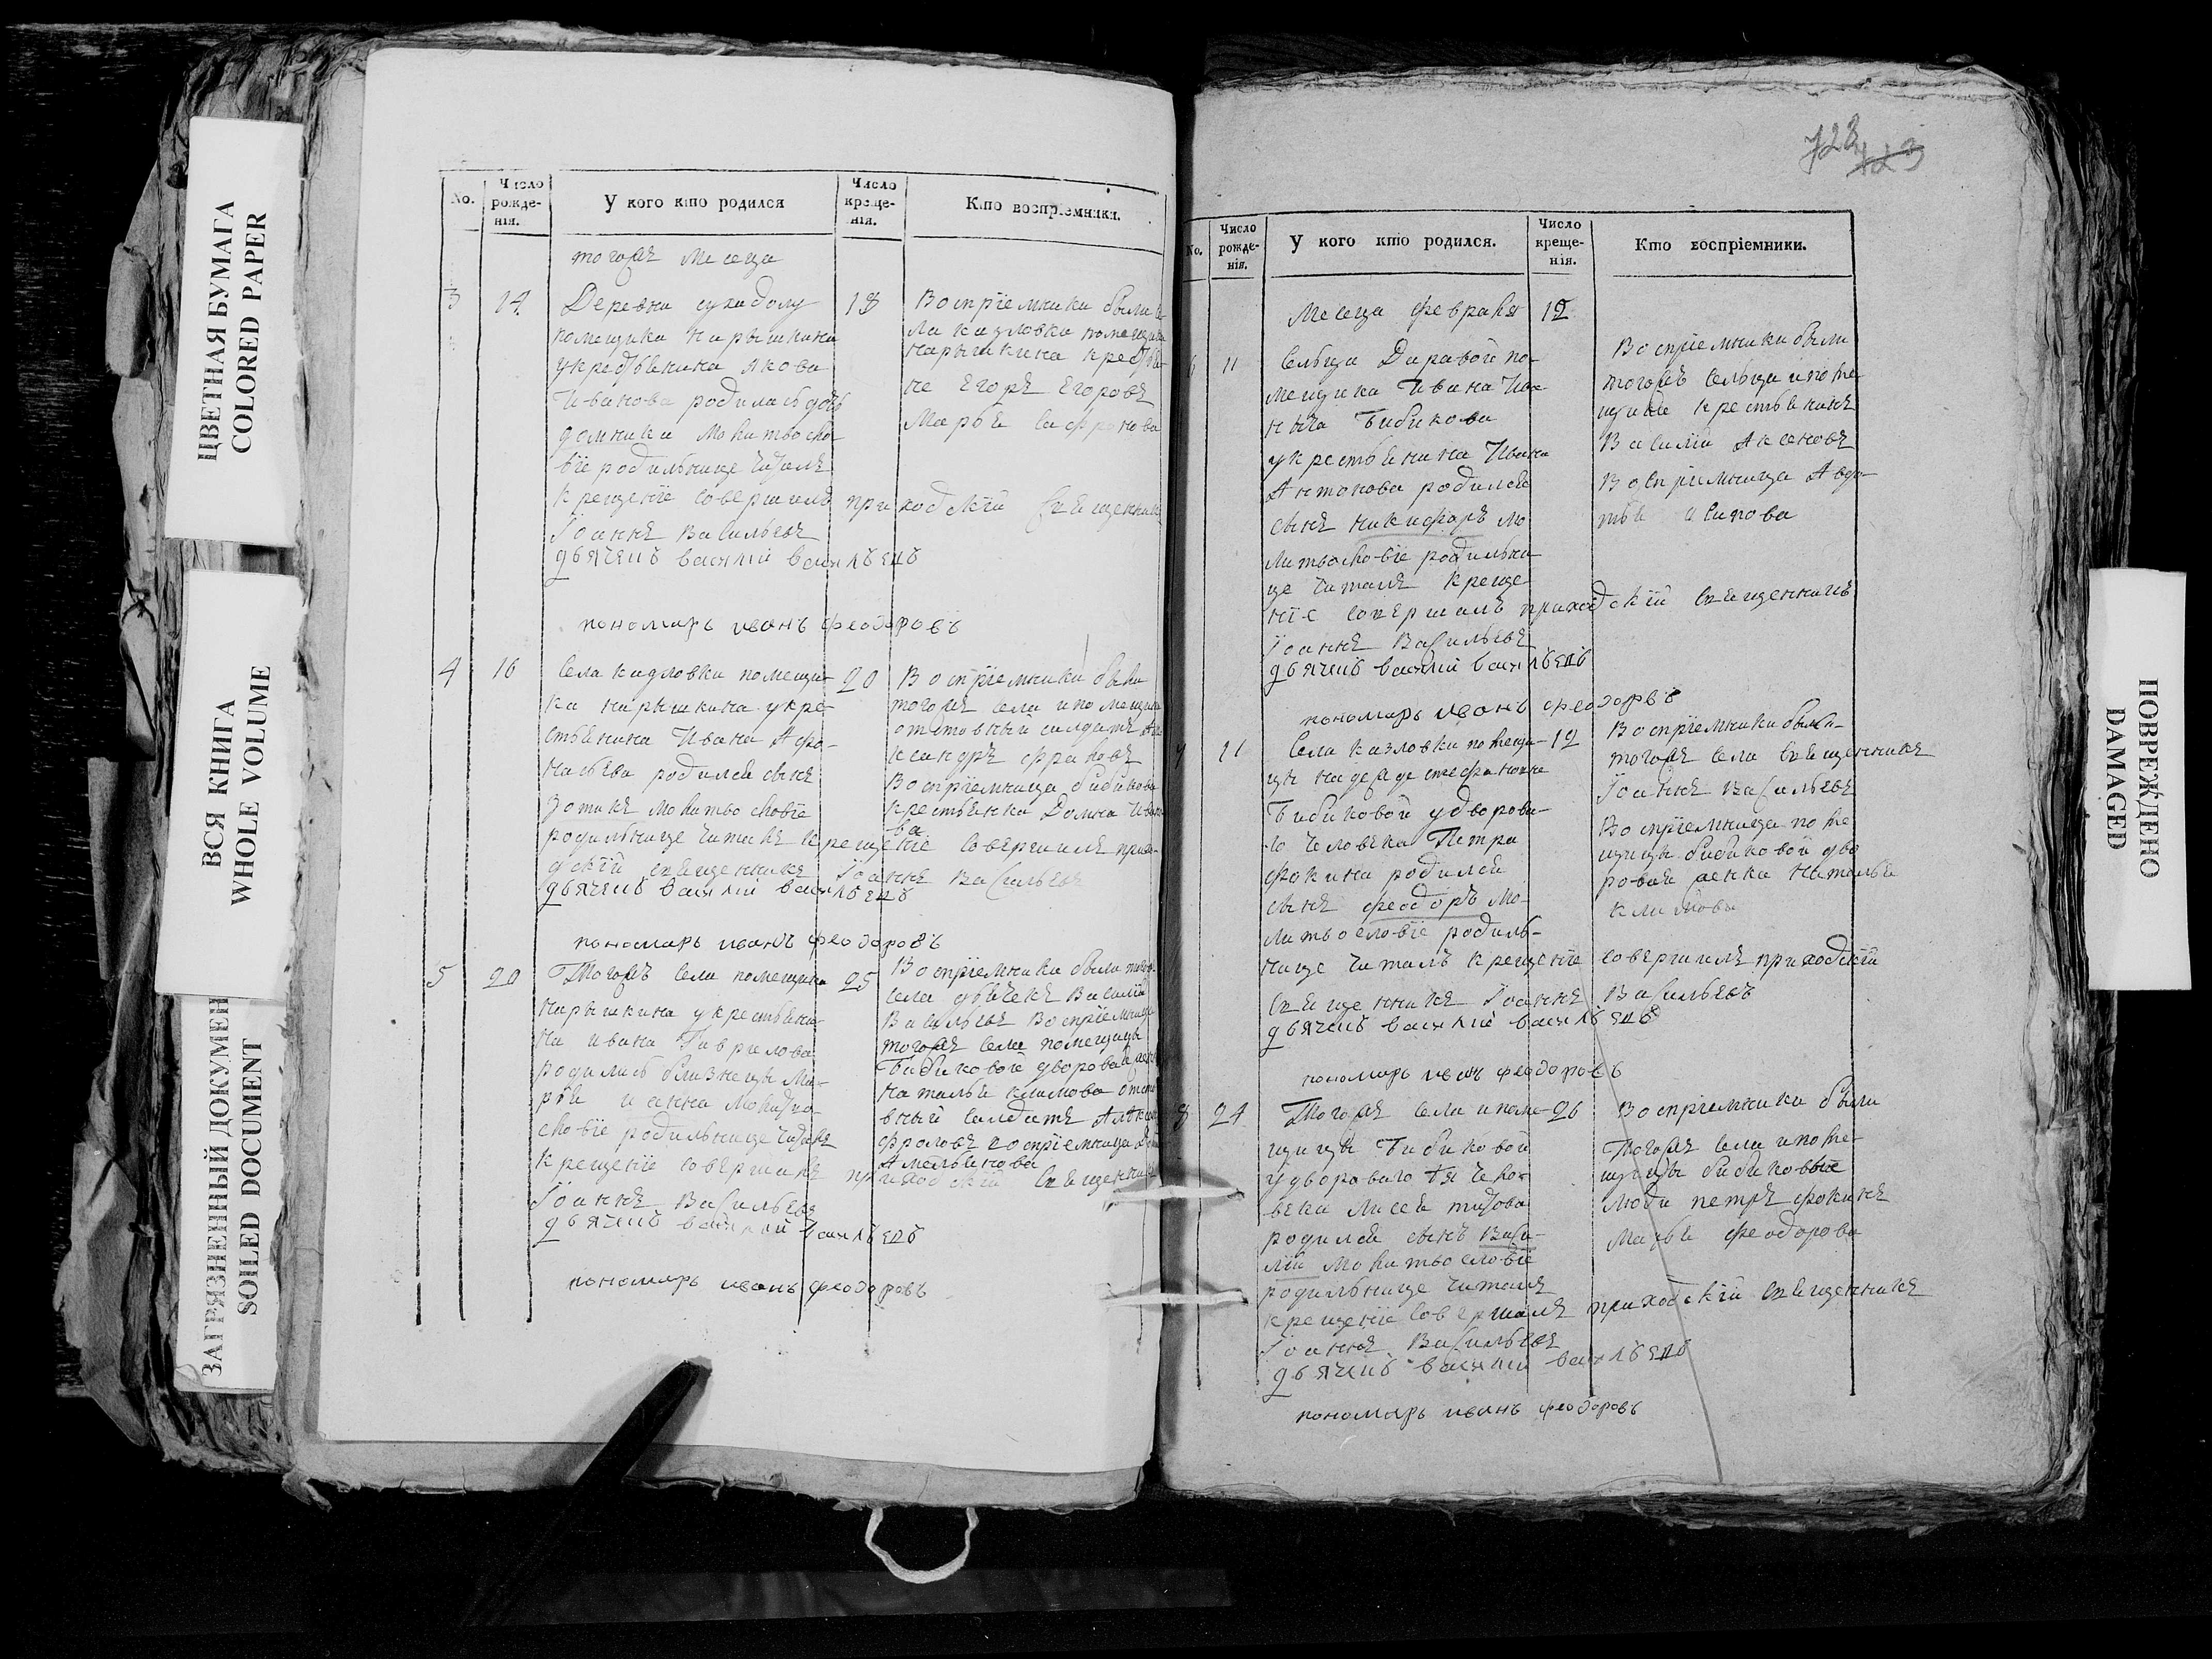 ЦВЕТНАЯ БУМАГА
COLORED PAPER
ВСЯ КНИГА
WHOLE VOLUME
ЗАГРЯЗНЕННЫЙ ДОКУМЕН
SOILED DOCUMENT
No.
Число рожденія.
У кого кто родился
Число крещенія.
Кто воспріемники.
тогожъ месеца
3 14 Деревни сухадолу 18
помещика Нарышкина
укрестьенина Якова
Иванова родилась дочь
домника молитвосло
віе родильнице читалъ
крещеніе совершилъ приходскій свещенникъ
Іоаннъ Васильевъ
дьячекъ василий васильевъ
пономарь иванъ феодоровъ
Воспріемники были се
ла казловки помещика
нарышкина крестьа
не Егоръ Егоровъ
Марѳа сафронова
4 16 Села казловки помещи 20
ка нарышкина укре
стьенина Ивана Афо
насьева родился сынъ
Зотикъ молитвословіе
родильнице читалъ крещеніе совершилъ прихо
дскій свещенникъ Іоаннъ Васильевъ
дьячекъ василий васильевъ
пономарь иванъ феодоровъ
Воспріемники были
тогожъ села и помещика
отставный салдатъ Але
ксандръ фраловъ
Воспріемница бибикова
крестьенка Домна Ивано
ва
5 20 Тогожъ села помещика 25
нарышкина укрестьени
на ивана Гаврилова
родились близнецы Ма
рѳа и анна молитво
словіе родильнице читалъ
крещеніе совершилъ приходскій свещенни
Іоаннъ Васильевъ
дьячекъ василий васильевъ
пономарь иванъ феодоровъ
Воспріемники были тогожъ
села дьячекъ Василій
Васильевъ Воспріемница
тогожъ села помещицы
Бибиковой дворовая
Наталья климова отста
вный салдатъ Алекса
фроловъ воспріемница
Амельенова
728
723
No.
Число рожденія.
У кого кто родился.
Число крещенія.
Кто воспріемники.
Месеца февраля 12
6 11 Сельца Даравой по
мещика Ивана Ива
ныча Бибикова
укрестьенина Ивана
Антонова родился
сынъ никифоръ мо
литвословіе родильни
це читалъ креще
ніе совершилъ приходскій свещенникъ
Іоаннъ Васильевъ
дьячекъ василий васильевъ
пономарь иванъ феодорвъ
Воспріемники были
тогожъ сельца и поме
щика крестьенинъ
Василій Аксеновъ
Воспріемница Авдо
тья
7 11 Села казловки помещи 12
цы надежде стефановне
Бибиковой удворова
го человека Петра
фокина родился
сынъ феодоръ мо
литвословіе родиль
нице читалъ крещеніе совершилъ приходскій
свещенникъ Іоаннъ Васильевъ
дьячекъ василий васильевъ
пономарь иванъ феодоровъ
Воспріемники были
тогожъ села свещенникъ
Іоаннъ Васильевъ
Воспріемница поме
щицы бибиковой дво
ровая женка Наталья
климова
8 24 Тогожъ села и поме 26
щицы Бибиковой
удвороваго чело
века
родился сынъ Васи
лій молитвословіе
родильнице читалъ
крещеніе совершилъ приходскій свещенникъ
Іоаннъ Васильевъ
дьячекъ василий васильевъ
пономарь иванъ феодоровъ
Воспріемники были
Тогожъ села и поме
щицы бибиковые
люди петръ фокинъ
Марѳа феодорова
ПОВРЕЖДЕНО
DAMAGED